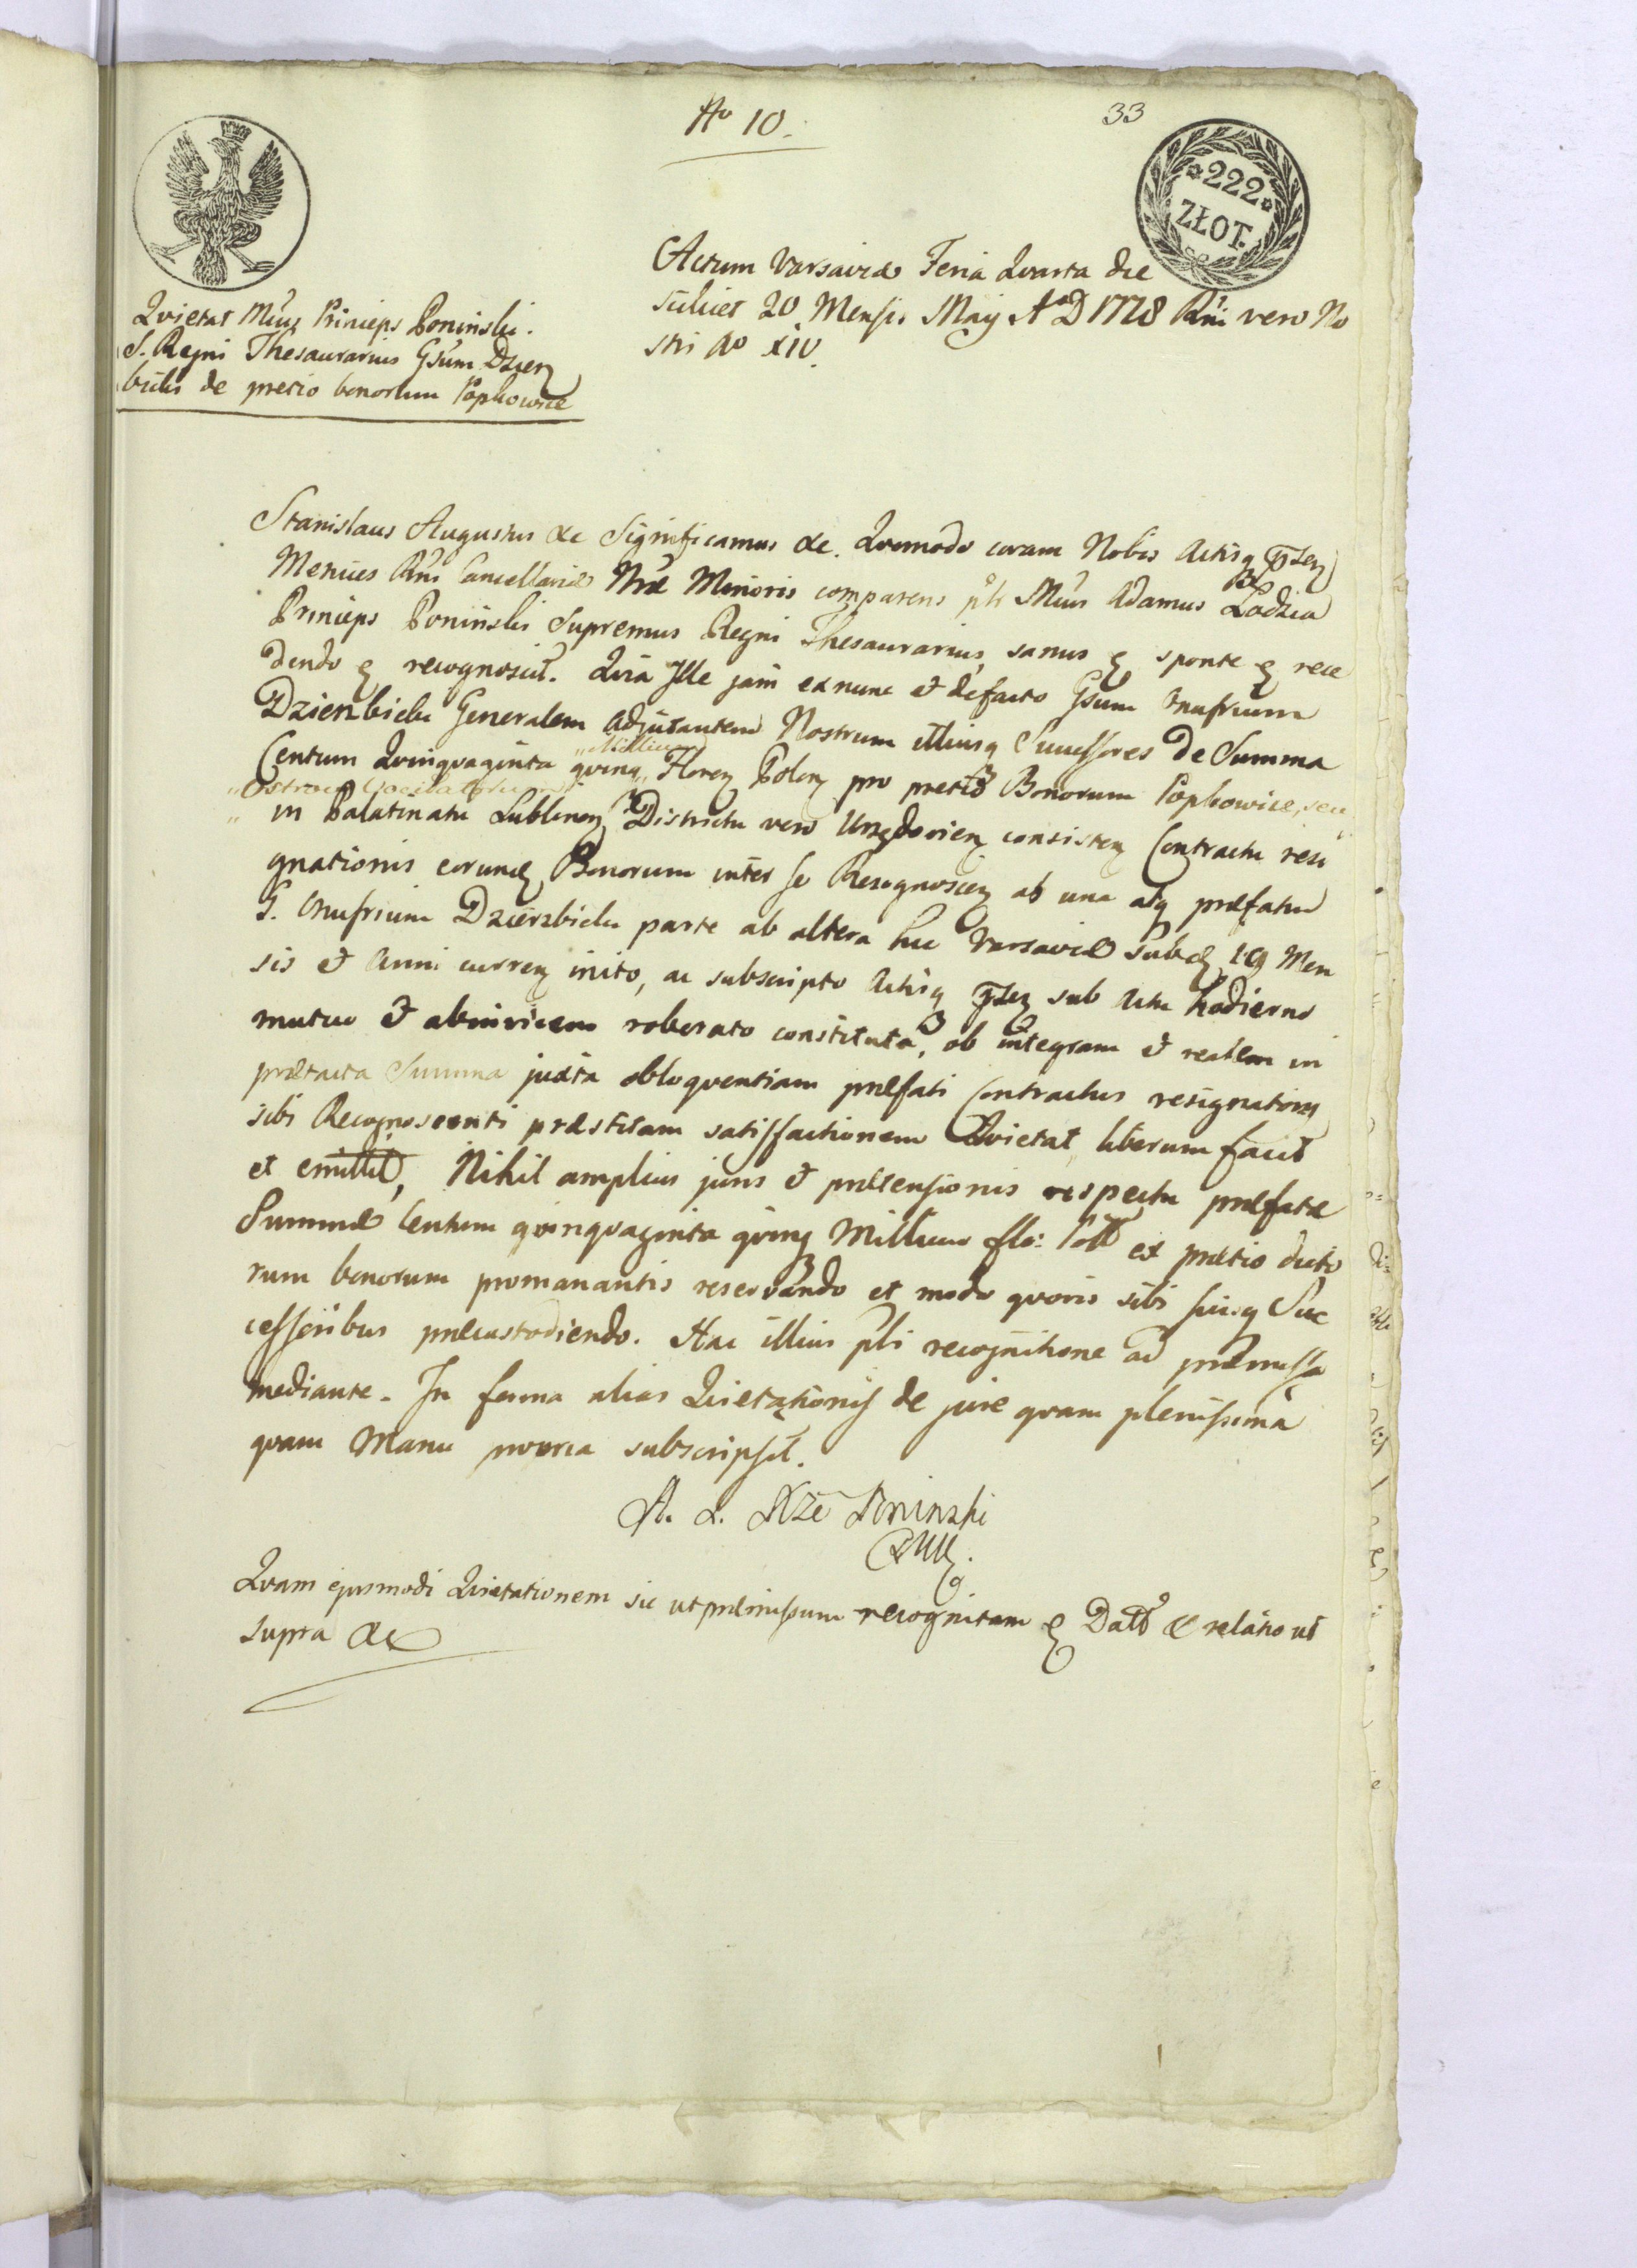 No 10.
33
222
ZŁOT.
Actum Varsaviæ Feria Quarta die
scilicet 20 Mensis Maij Ao D 1778 Rni vero No
stri Ao XIV.
Quietat Mcus Princeps Poninski.
S. Regni Thesaurarius Gsum Dzierz
bicki de pretio bonorum Popkowice
Stanislaus Augustus &c Significamus &c. Quomodo coram Nobis Actisq
Metrices Rni Cancellariæ Nræ Minoris comparens plr Mcus Adamus Łodzia
Princeps Poninski Supremus Regni Thesaurarius, sanus & sponte & rece
dendo & recognoscit. Quia Ille jam ex nunc et de facto Gsum Onufrium
Dzierzbicki Generalem Adjutantem Nostrum illiusq Successores De Summa
„Millium
Centum Quinquaginta quinq „ Floren Polon pro pretio Bonorum Popkowice, seu
„Ostrow
„ in Palatinatu Lublinen Districtu vero Urzędovien consisten Contractu resi
gnationis eorund Bonorum inter se Recognoscen ab una atq præfatum
G. Onufrium Dzierzbicki parte ab altera hic Varsaviæ sub d 19 Men
sis et Anni curren inito, ac subscripto Actisq sub Actu hodierno
mutuo et abinvicem roborato constituta, ob integram et realem in
prætacta Summa juxta obloquentiam præfati Contractus resignationis
sibi Recognoscenti præstitam satisfactionem Quietat, liberum facit
et emittit, Nihil amplius juris et prætensionis respectu præfatæ
Summæ Centum quinquaginta quinq Millium flo: Poll ex pretio dicto
rum bonorum promanantis reservando et modo quovis sibi suisq Suc
cessoribus præcustodiendo. Hac illius pli recognitione ad præmissa
mediante. In forma alias Quietationis de jure quam plenissima
quam Manu propria subscripsit.
A. Ł. Xże Poninski
Quam ejusmodi Quietationem sic ut præmissum recognitam & Datt & relatio ut
supra &c